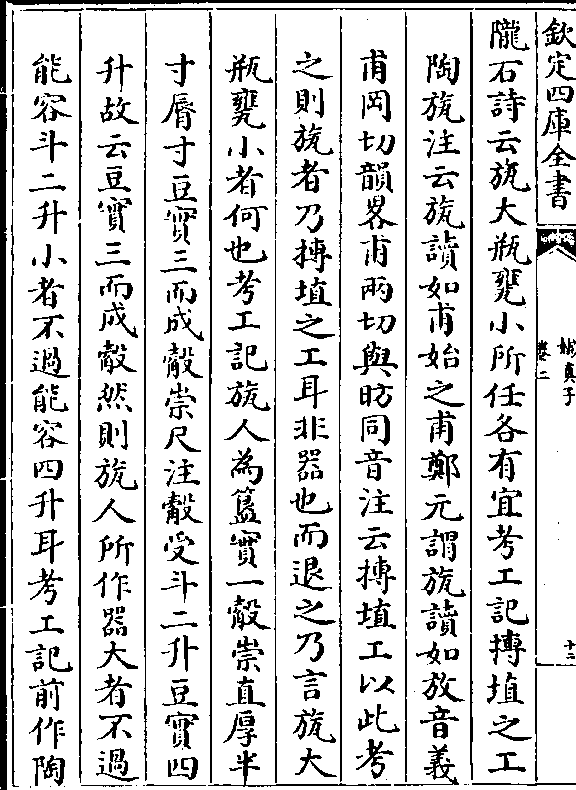 欽定四庫全書
嬾真子
卷二
十二
隴石詩云瓬大瓶甖小所任各有宜考工記摶埴之工
陶瓬注云瓬讀如甫始之甫鄭元謂瓬讀如放音義
甫岡切韻畧甫兩切與昉同音注云摶埴工以此考
之則瓬者乃摶埴之工耳非器也而退之乃言瓬大
瓶甖小者何也考工記瓬人為簋實一觳崇直厚半
寸脣寸豆實三而成觳崇尺注觳受斗二升豆實四
升故云豆實三而成觳然則瓬人所作器大者不過
能容斗二升小者不過能容四升耳考工記前作陶